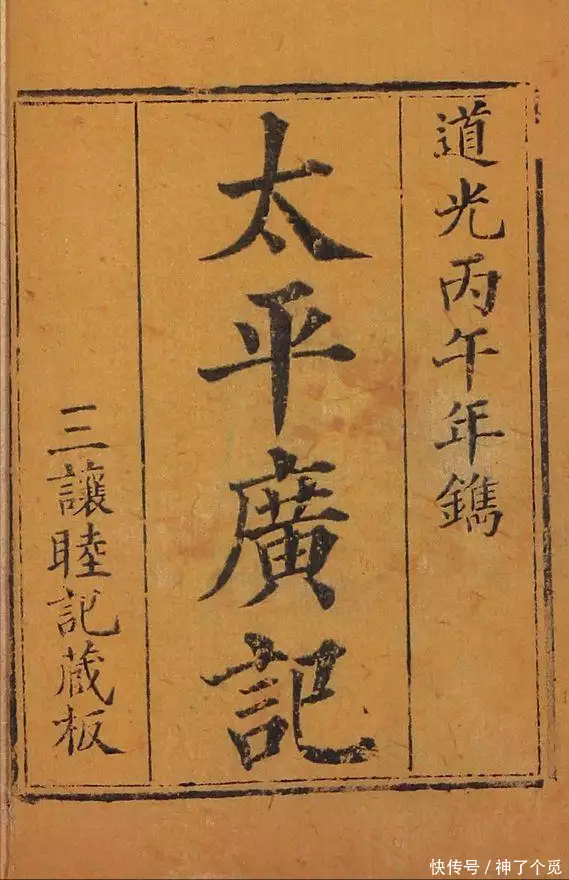 道光丙午年鐫
太平廣記
三讓睦記藏板
快传号/神了个觅